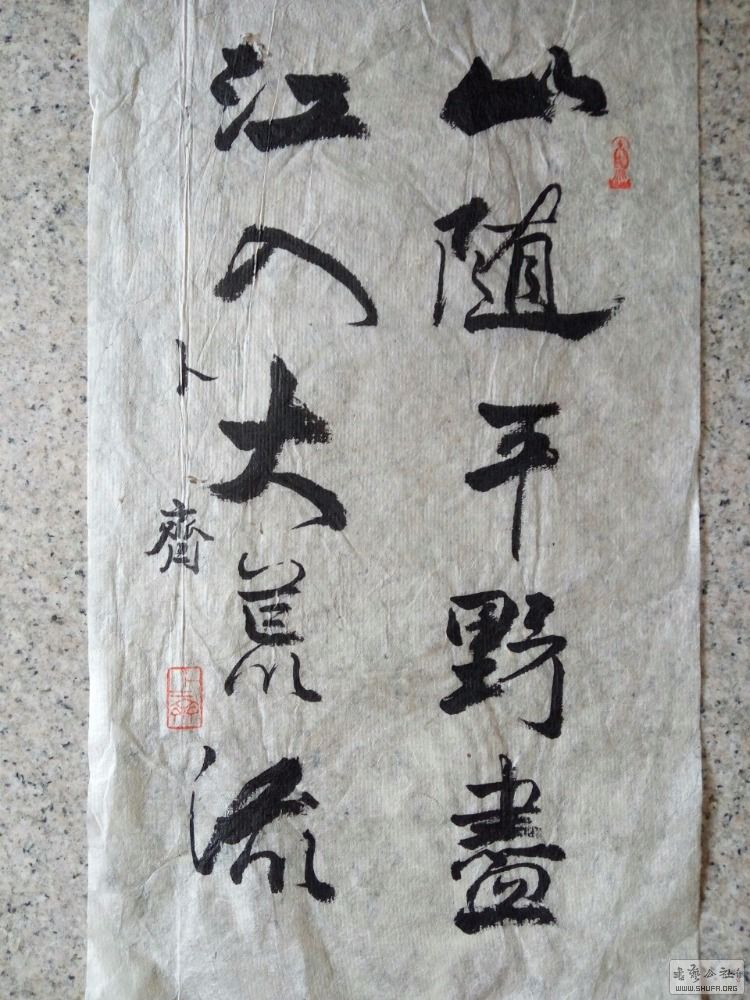 山随平野盡
江入大荒流
卜齊
WWW.SHUFA.ORG